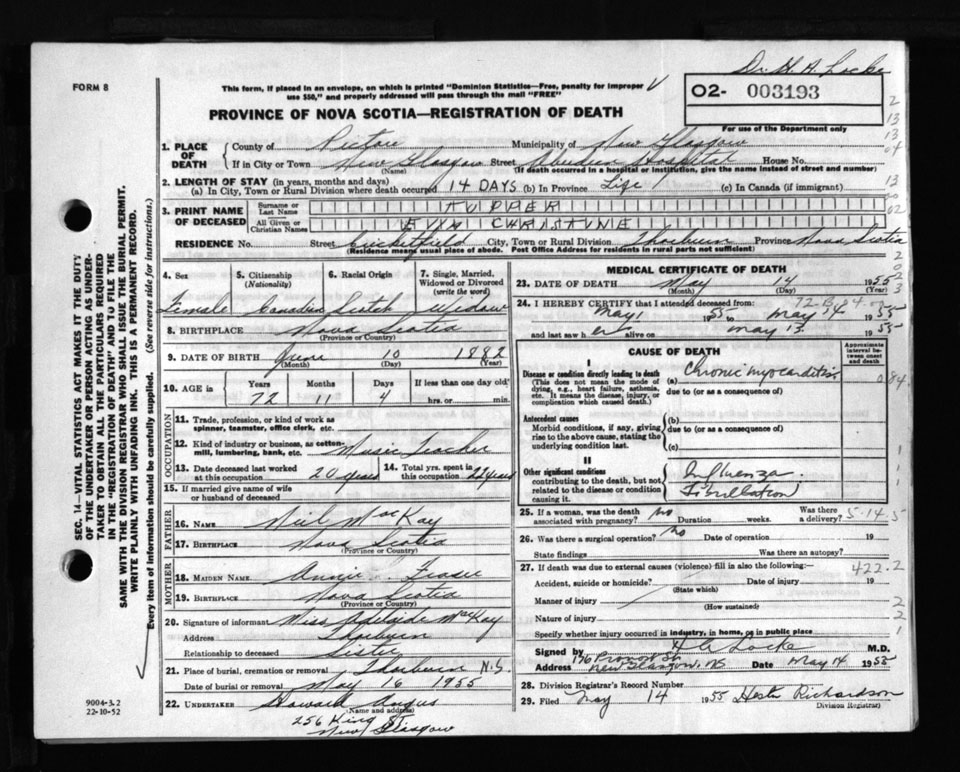 FORM 8
This form, if placed in an envelope, on which is printed "Dominion Statistics—Free, penalty for improper
use $50," and properly addressed will pass through the mail "FREE"
Dr. H. A. Locke
O2- 003193
For use of the Department only
PROVINCE OF NOVA SCOTIA—REGISTRATION OF DEATH
1. PLACE OF DEATH
County of Pictou Municipality of New Glasgow
If in City or Town New Glasgow Street Aberdeen Hospital House No.
(Name) (If death occurred in a hospital or institution, give the name instead of street and number)
2. LENGTH OF STAY (in years, months and days)
(a) In City, Town or Rural Division where death occurred 14 DAYS (b) In Province Life (c) In Canada (if immigrant)
3. PRINT NAME OF DECEASED
Surname or Last Name TUPPER
All Given or Christian Names CHRISTINE
RESIDENCE No. Street City, Town or Rural Division Thorburn Province Nova Scotia
(Residence means usual place of abode. Post Office Address for residents in rural parts not sufficient)
4. Sex 5. Citizenship (Nationality) 6. Racial Origin 7. Single, Married, Widowed or Divorced (write the word)
Female Canadian Scotch Widow
8. BIRTHPLACE Nova Scotia
(Province or Country)
9. DATE OF BIRTH June 10 1882
(Month) (Day) (Year)
10. AGE in Years Months Days If less than one day old
72 11 4 hrs. or min.
OCCUPATION
11. Trade, profession, or kind of work as spinner, teamster, office clerk, etc.
12. Kind of industry or business, as cotton-mill, lumbering, bank, etc. Music Teacher
13. Date deceased last worked at this occupation 20 years 14. Total yrs. spent in this occupation 22 years
15. If married give name of wife or husband of deceased
FATHER
16. NAME Neil MacKay
17. BIRTHPLACE Nova Scotia
(Province or Country)
MOTHER
18. MAIDEN NAME Annie Fraser
19. BIRTHPLACE Nova Scotia
(Province or Country)
20. Signature of informant Miss Adelaide MacKay
Address Thorburn
Relationship to deceased Sister
21. Place of burial, cremation or removal Thorburn N.S.
Date of burial or removal May 16 1955
22. UNDERTAKER Howard Angus
(Name and address)
256 King St
New Glasgow
MEDICAL CERTIFICATE OF DEATH
23. DATE OF DEATH May 14 1955
(Month) (Day) (Year)
24. I HEREBY CERTIFY that I attended deceased from:
May 1 1955 to May 14 1955
and last saw her alive on May 13 1955
CAUSE OF DEATH
Approximate interval between onset and death
I
Disease or condition directly leading to death
(This does not mean the mode of dying, e.g., heart failure, asthenia, etc. It means the disease, injury, or complication which caused death.)
(a) Chronic myocarditis
due to (or as a consequence of)
Antecedent causes
Morbid conditions, if any, giving rise to the above cause, stating the underlying condition last.
(b)
due to (or as a consequence of)
(c)
II
Other significant conditions
contributing to the death, but not related to the disease or condition causing it.
Influenza
Fibrillation
25. If a woman, was the death associated with pregnancy? no Duration weeks. Was there a delivery?
26. Was there a surgical operation? no Date of operation 19
State findings Was there an autopsy?
27. If death was due to external causes (violence) fill in also the following:
422.2
Accident, suicide or homicide? Date of injury 19
(State which)
Manner of injury
(How sustained)
Nature of injury
Specify whether injury occurred in industry, in home, or in public place
Signed by H A Locke M.D.
Address 176 Provost St. New Glasgow, NS Date May 14 1955
28. Division Registrar's Record Number
29. Filed May 14 1955 Hester Richardson
(Division Registrar)
SEC. 14—VITAL STATISTICS ACT MAKES IT THE DUTY
OF THE UNDERTAKER OR PERSON ACTING AS UNDER-
TAKER TO OBTAIN ALL THE PARTICULARS REQUIRED
IN THE "REGISTRATION OF DEATH" AND TO FILE THE
SAME WITH THE DIVISION REGISTRAR WHO SHALL ISSUE THE BURIAL PERMIT.
WRITE PLAINLY WITH UNFADING INK. THIS IS A PERMANENT RECORD.
Every item of information should be carefully supplied. (See reverse side for instructions.)
9004-3.2
22-10-52